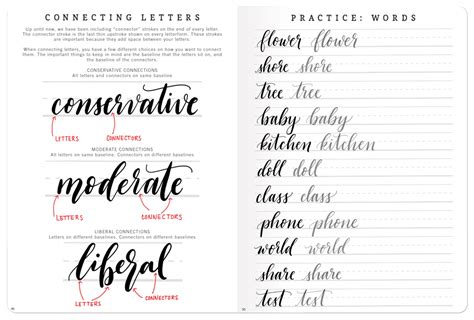 CONNECTING LETTERS
Up until now, we have been including "connector" strokes on the end of every letter.
The connector stroke is the last thin upstroke shown on every letterform. These strokes
are important because they add space between your letters.
When connecting letters, you have a few different choices on how you want to connect
them. The important things to keep in mind are the baseline that the letters sit on, and
the baseline of the connectors.
CONSERVATIVE CONNECTIONS
All letters and connectors on same baseline
conservative
LETTERS CONNECTORS
MODERATE CONNECTIONS
All letters on same baseline. Connectors on different baselines.
moderate
LETTERS CONNECTORS
LIBERAL CONNECTIONS
Letters on different baselines. Connectors on different baselines.
liberal
LETTERS CONNECTORS
PRACTICE: WORDS
flower flower
shore shore
tree tree
baby baby
kitchen kitchen
doll doll
class class
phone phone
world world
share share
test test